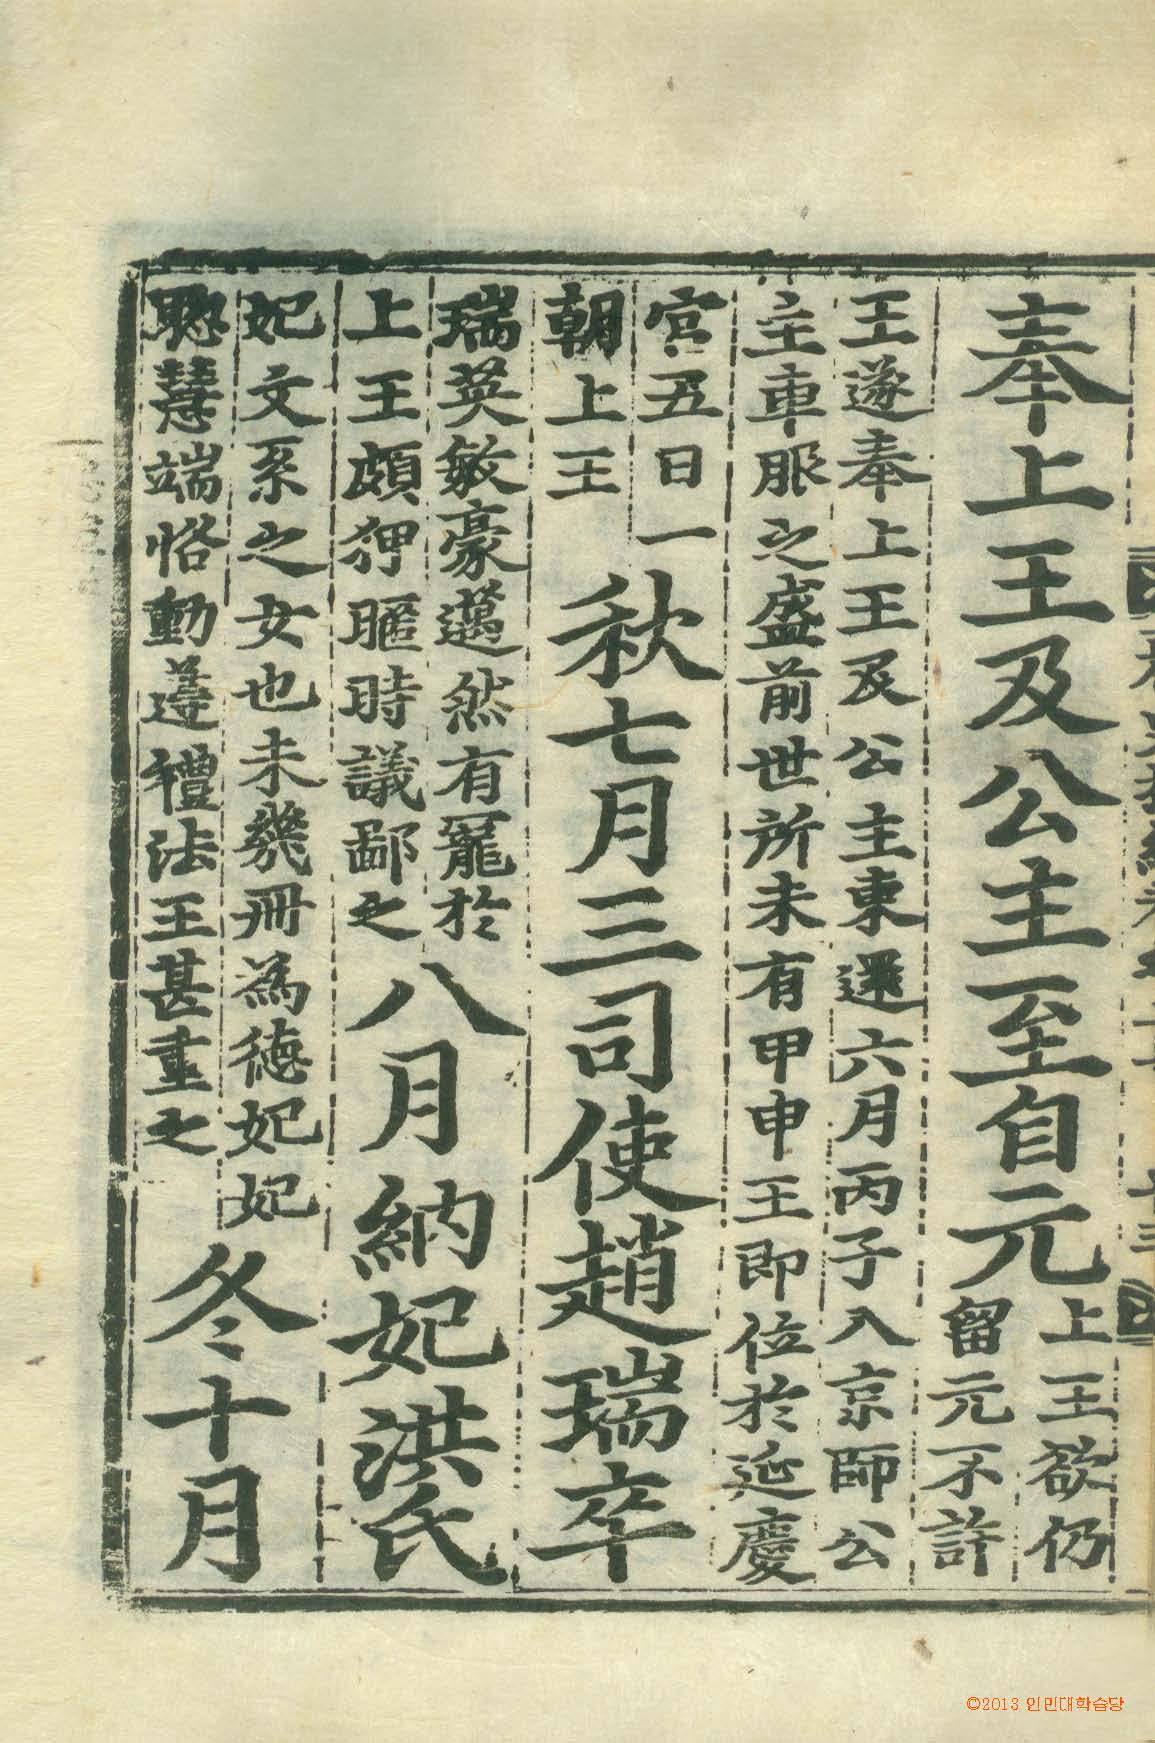 奉上王及公主至自元
上王欲仍
留元不許
王遂奉上王及公主東還六月丙子入京師公
主車服之盛前世所未有甲申王即位於延慶
宮五日一
朝上王
秋七月三司使趙瑞卒
瑞英敏豪邁然有寵於
上王頗狎昵時議鄙之
八月納妃洪氏
妃文系之女也未幾冊為德妃妃
聰慧端恪動遵禮法王甚重之
冬十月
©2013 인민대학습당